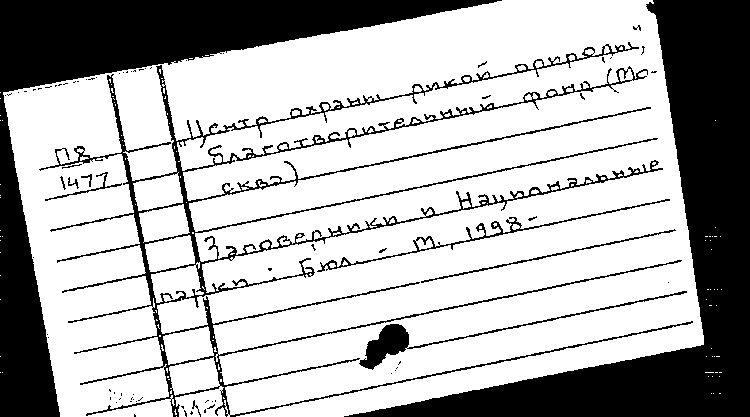 "Центр охраны дикой природы",
благотворительный фонд (Мо-
сква)
П8
1477
Заповедники и Национальные
парки : Бюл. - М., 1998-